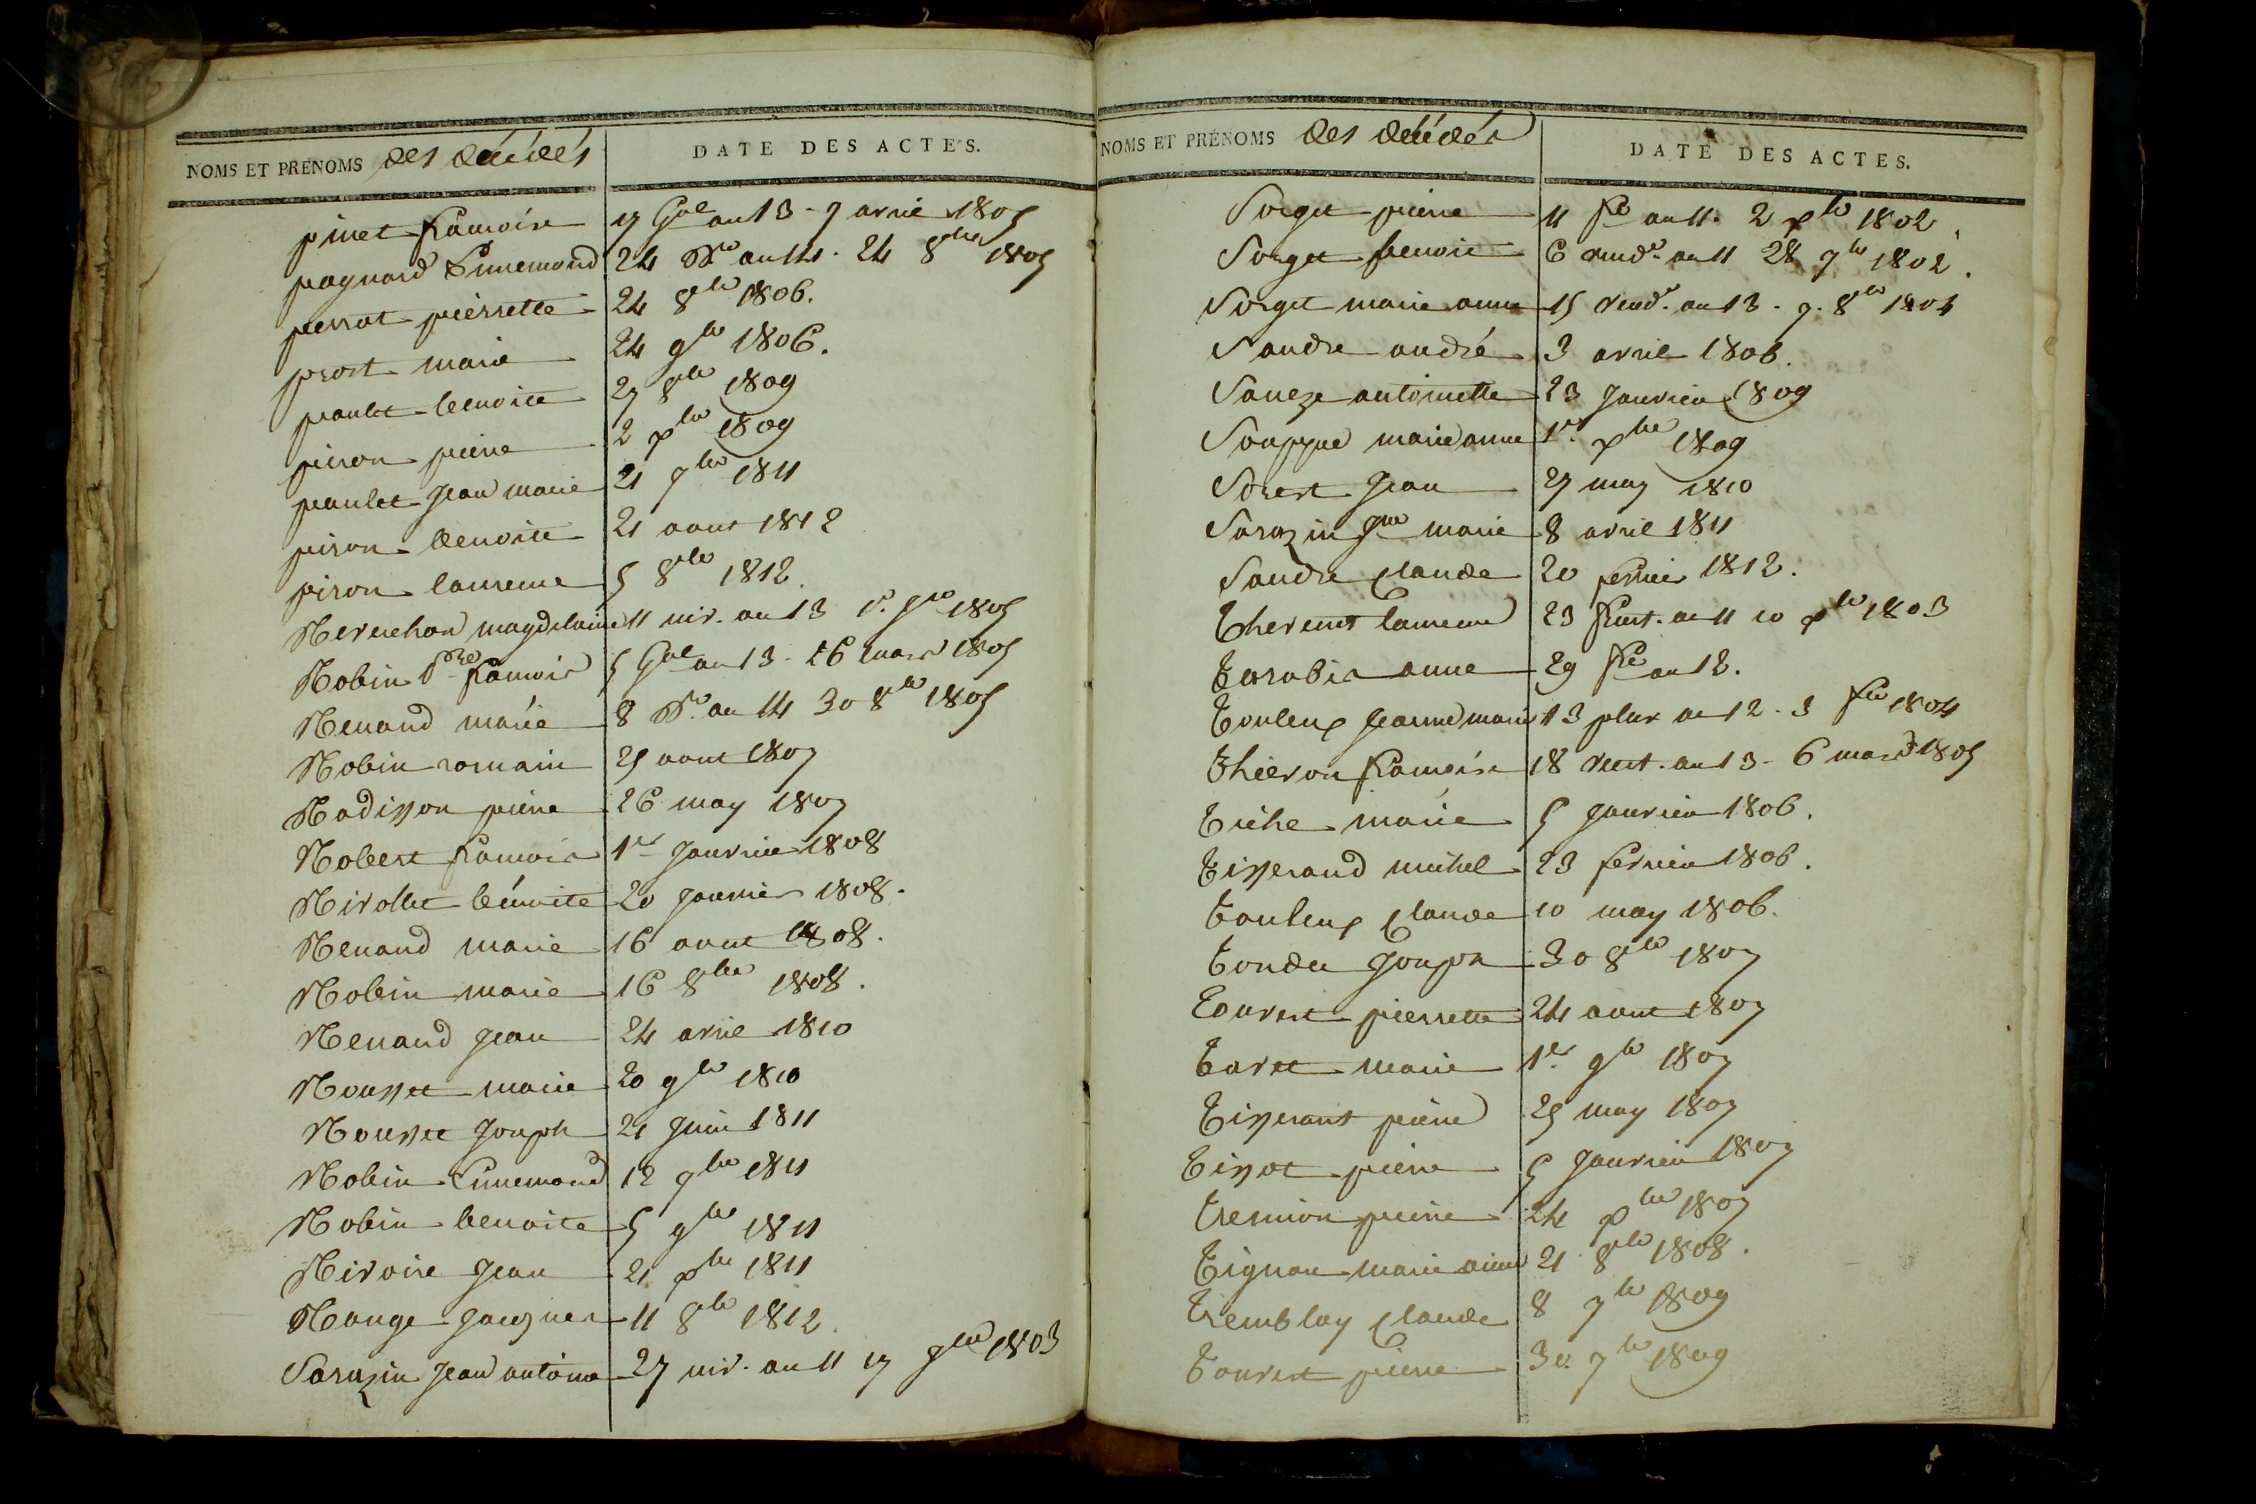 NOMS ET PRENOMS des décédés
DATE DES ACTES.
pinet françoise 17 Gal an 13 - 7 avril 1805
pagnard Ennemond 24 an 14 - 24 8bre 1805
perrat pierrette 24 8bre 1806.
prost marie 24 9bre 1806.
paulet benoite 27 8bre 1809
piron pierre 2 xbre 1809
paulet jean marie 21 7bre 1811
piron benoite 21 aout 1812
piron laurence 5 8bre 1812.
Revuchon magdelaine 11 niv. an 13 1er jer 1805
Robin françois 5 Gal an 13 - 26 mars 1805
Renand marie 8 an 14 30 8bre 1805
Robin romain 25 aout 1807
Radisson pierre 26 may 1807
Robert françois 1er janvier 1808
Rivollet bénoite 20 janvier 1808.
Renand marie 16 aout 1808.
Robin marie 16 8bre 1808.
Renand jean 24 avril 1810
Rousset marie 20 9bre 1810
Rousset joseph 21 juin 1811
Robin Ennemond 12 9bre 1811
Robin benoite 5 9bre 1811
Rivoire jean 21 xbre 1811
Range jacques 11 8bre 1812.
Sarazin jean antoine 27 niv. an 11 17 jer 1803
NOMS ET PRÉNOMS des décédés
DATE DES ACTES.
Sorget pierre 11 fre an 11. 2 xbre 1802.
Sorget benoit 6 vendre an 11 28 7bre 1802.
Sorget marie anne 15 vendre an 13 - 7. 8bre 1804
Sandre andré 3 avril 1806.
Saneze antoinette 23 janvier 1809
marie anne 1er xbre 1809
jean 27 may 1810
Sarazin jne marie 8 avril 1811
Sandre claude 20 fevrier 1812.
Thevenet laurence 23 fruct. an 11 10 1803
anne 29 fre an 12.
Touleux jeanne marie 13 pluv an 12 - 3 fer 1804
Thievon françoise 18 vent. an 13 - 6 mars 1805
Triche marie 5 janvier 1806.
Tisserand michel 23 fevrier 1806.
Touleux claude 10 may 1806.
Tondu joseph 30 8bre 1807
Touvert pierrette 24 aout 1807
Tavet marie 1er 9bre 1807
Tisserant pierre 25 may 1807
Tissot pierre 5 janvier 1807
Tremion pierre 24 xbre 1807
Tignan marie aimée 21 8bre 1808.
Tremblay claude 8 7bre 1809
Touvert pierre 30. 7bre 1809